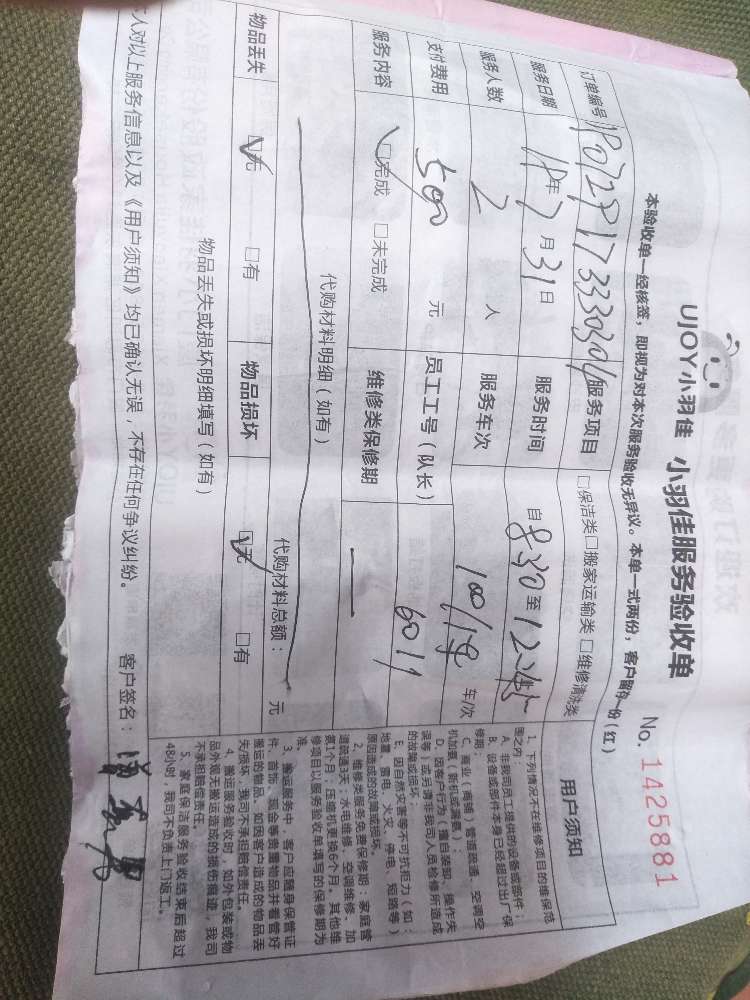 UJOY小羽佳 小羽佳服务验收单 No. 1425881
本验收单一经核签，即视为对本次服务验收无异议。本单一式两份，客户留存一份（红）
订单编号 服务项目 □保洁类□搬家运输类 □维修清洗类
服务日期 18年7月31日 服务时间 自8:30至12:45
服务人数 2 人 服务车次 100/1 车/次
支付费用 500 元 员工工号（队长） 6011
服务内容 □完成 □未完成 维修类保修期 —
代购材料明细（如有）
代购材料总额： 元
物品丢失 □无 □有 物品损坏 □无 □有
物品丢失或损坏明细填写（如有）
人对以上服务信息以及《用户须知》均已确认无误，不存在任何争议纠纷。 客户签名：
用户须知
1、下列情况不在维修项目的维保范
围之内：
A、非我司员工提供的设备或部件；
B、设备或部件本身已经超过出厂保
修期；
C、商业（商铺）管道疏通、空调空
机加氟（新机或漏氟）；
D、因客户行为（擅自装卸、操作失
误等）或另请非我司人员检修所造成
的故障或损坏；
E、因自然灾害等不可抗拒力（如：
地震、雷电、火灾、停电、短路等）
原因造成的故障或损坏。
2、维修类服务免费保修期：家庭管
道疏通3天；水电维修、空调维修、加
氟1个月；压缩机更换6个月。其他维
修项目以服务验收单填写的保修期为
准。
3、搬运服务中，客户应随身保管证
件、首饰、现金等贵重物品并看管好
搬运的物品。如因客户造成的物品丢
失/损坏，我司不承担赔偿责任。
4、搬运服务验收时，如外包装或物
品外观无搬运造成的损伤痕迹，我司
不承担赔偿责任。
5、家庭保洁服务验收结束后超过
48小时，我司不负责上门返工。